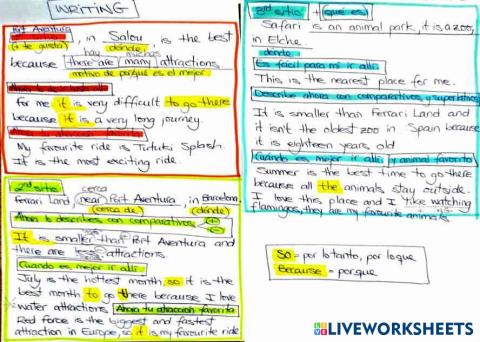 WRITING
Port Aventura
(si te gusta)
, in Salou, is the best
dónde
hay muchas
because there are many attractions
motivo de porque es el mejor.
For me it is very difficult to go there
because it is a very long journey.
Ahora tu atracción favorita
My favourite ride is Tutuki Splash.
It is the most exciting ride.
2nd sitio
cerca
Ferrari Land, near Port Aventura, in Barcelona.
(cerca de) (dónde)
Ahora lo describes con comparativos
It is smaller than Port Aventura and
there are less attractions.
Cuando es mejor ir allí
July is the hottest month, so it is the
best month to go there because I love
water attractions. Ahora tu atracción favorita
Red force is the biggest and fastest
attraction in Europe, so it is my favourite ride
3rd sitio + (qué es)
Safari is an animal park, it is a zoo,
in Elche.
dónde
Es fácil para mí ir allí
This is the nearest place for me.
Describe ahora con comparativos, y superlativos
It is smaller than Ferrari Land and
it isn't the oldest zoo in Spain because
it is eighteen years old
Cuando es mejor ir allí y animal favorito
Summer is the best time to go there
because all the animals stay outside.
I love this place and I like watching
flamingos, they are my favourite animals
So = por lo tanto, por lo que
Because = porque
LIVEWORKSHEETS